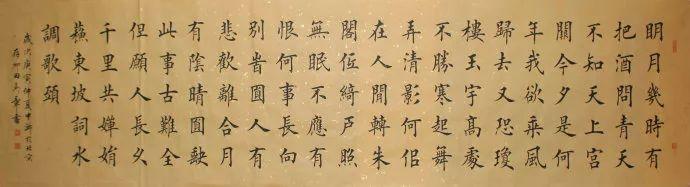 明月幾時有
把酒問青天
不知天上宮
闕今夕是何
年我欲乘風
歸去又恐瓊
樓玉宇高處
不勝寒起舞
弄清影何佀
在人間轉朱
閣低綺戶照
無眠不應有
恨何事長向
別旹圓人有
悲歡離合月
有陰晴圓缺
此事古難全
但願人長久
千里共嬋娟
蘇東坡詞水
調歌頭
歲次庚寅仲夏中浣於北京
存卿田英章書